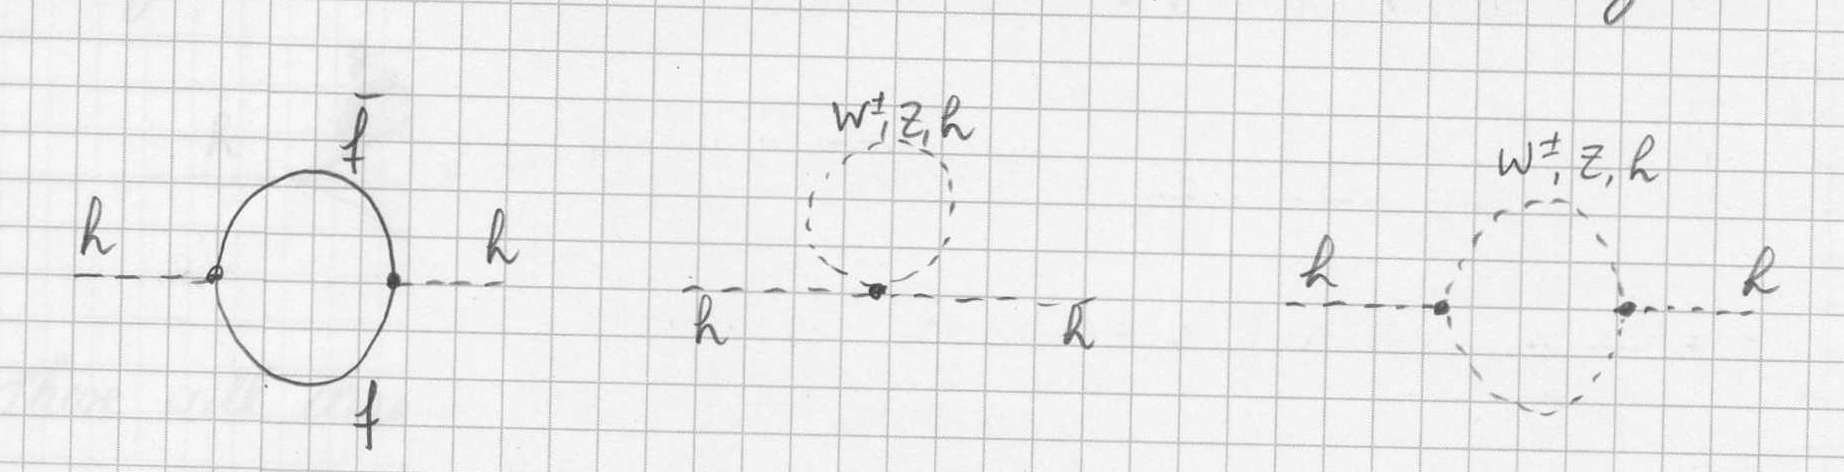 f̄
h h
f
W±, Z, h
h h
W±, Z, h
h h